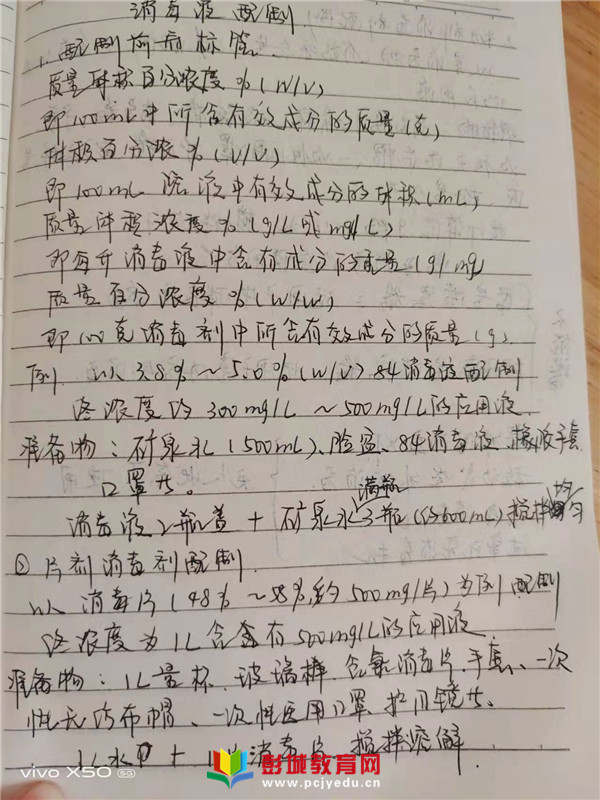 消毒液配制
1.配制前需标签.
质量体积百分浓度%(W/V)
即100mL中所含有效成分的质量(克)
体积百分浓%(V/V)
即100mL 溶液中有效成分的体积(mL)
质量体积浓度%(g/L或mg/L)
即每升消毒液中含有成分的质量(g/mg)
质量百分浓度%(W/W)
即100克消毒剂中所含有效成分的质量(g).
例. 以3.8%~5.0%(W/V)84消毒液配制
终浓度约300mg/L~500mg/L的应用液.
准备物:矿泉水(500mL)、脸盆、84消毒液 橡胶手套
口罩共。
满瓶
消毒液2瓶盖+矿泉水3瓶(约600mL)搅拌均匀
② 片剂消毒剂配制.
以消毒片(48%~58%,约500mg/片)为例配制
终浓度为1L含含有500mg/L的应用液.
准备物:1L量杯、玻璃棒、含氯消毒片、手套、一次
性无纺布帽、一次性医用口罩 护目镜共、
1L水 + 消毒片 搅拌溶解.
vivo X50 5G
彭城教育网
www.pcjyedu.cn